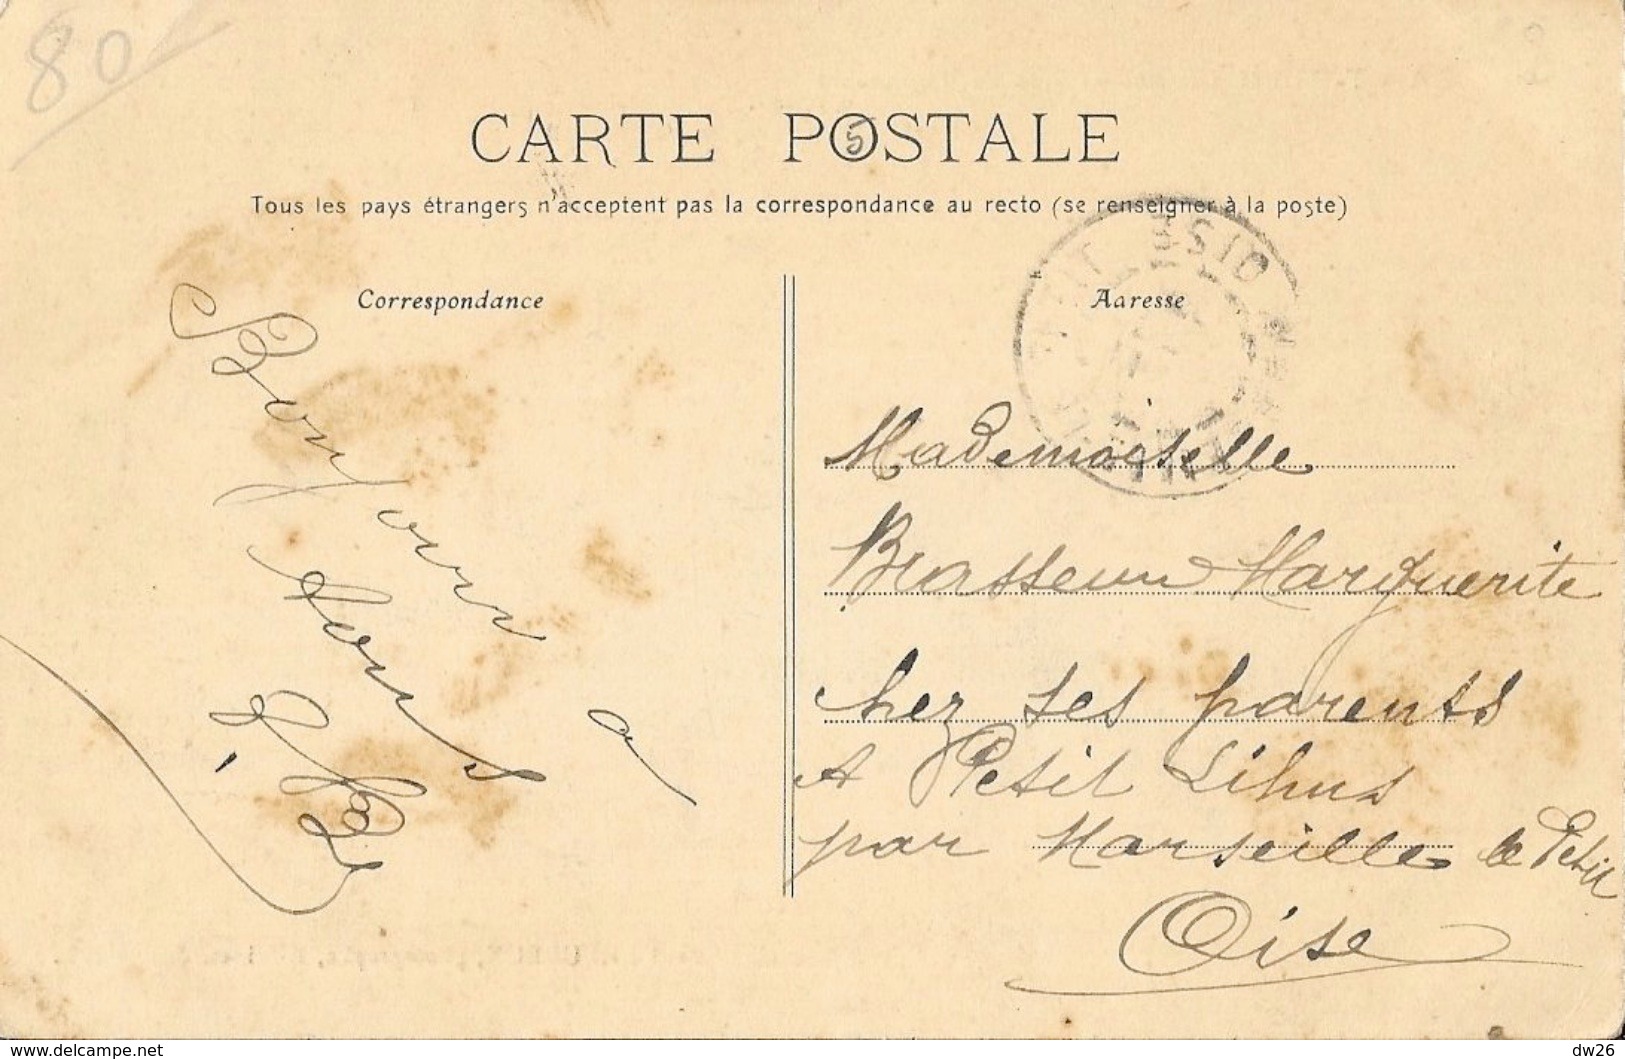 80
CARTE POSTALE
5
Tous les pays étrangers n'acceptent pas la correspondance au recto (se renseigner à la poste)
Correspondance
Bonjour a
tous
Adresse
OISE
Mademoiselle
Brasseur Marguerite
chez ses parents
A Petit Lihus
par Marseille le Petit
Oise
www.delcampe.net
dw26